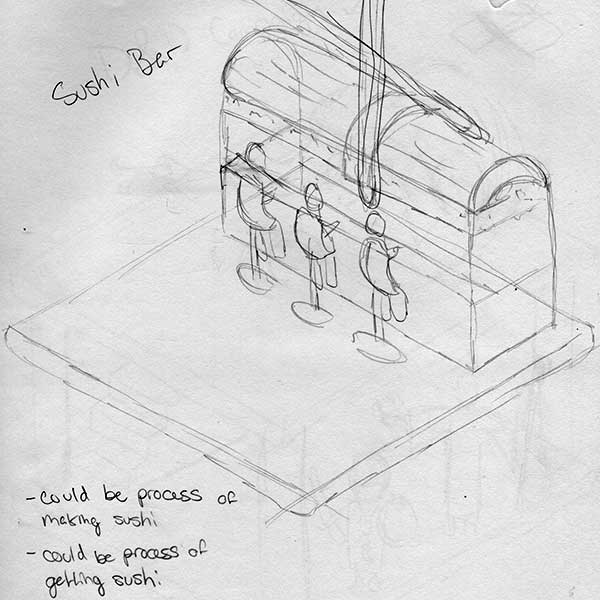 Sushi Bar
- could be process of
making sushi
- could be process of
getting sushi